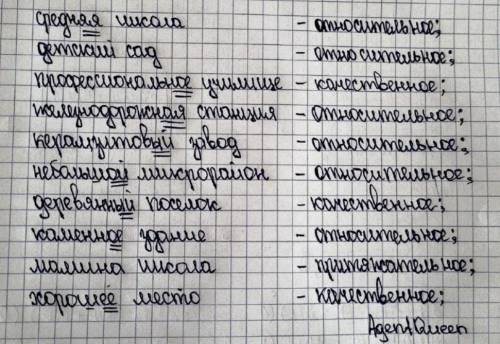 средняя школа - относительное;
детский сад - относительное;
профессиональное училище - качественное;
железнодорожная станция - относительное;
керамзитовый завод - относительное;
небольшой микрорайон - относительное;
деревянный поселок - качественное;
каменное здание - относительное;
мамина школа - притяжательное;
хорошее место - качественное;
AgentQueen